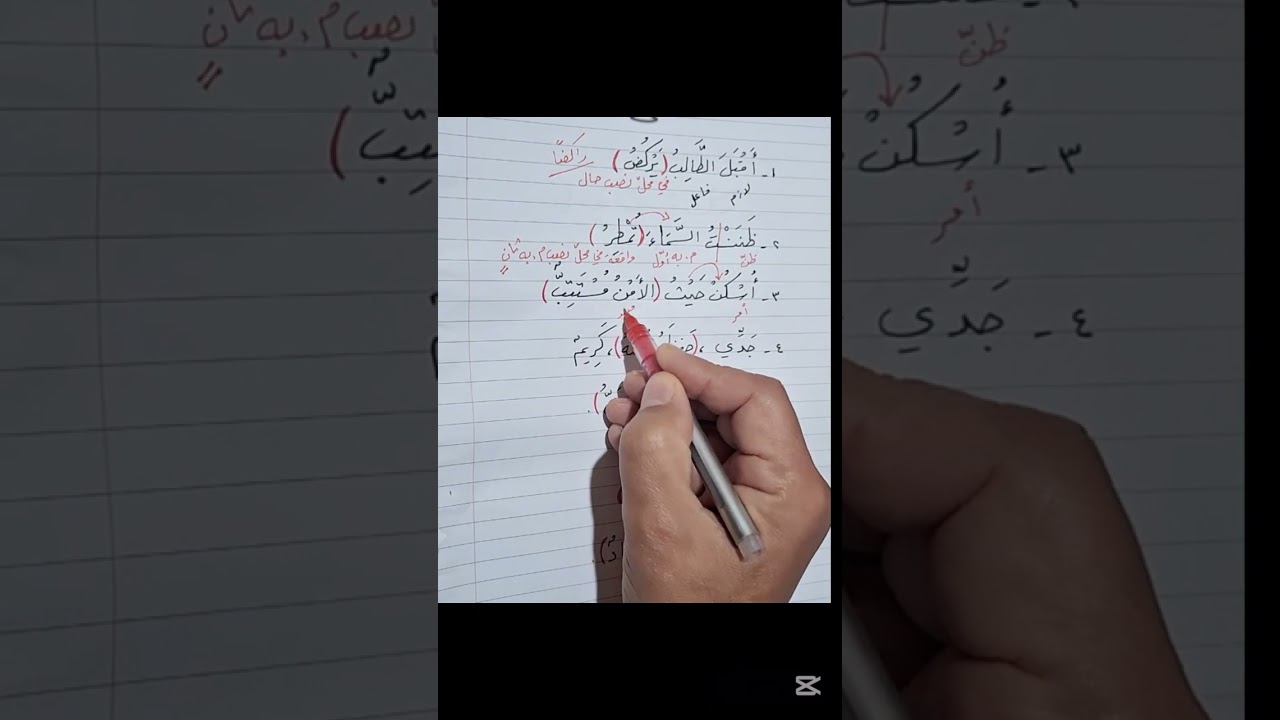 ١- أَقْبَلَ الطَّالِبُ (يَرْكُضُ) راكضًا
لازم فاعل في محلّ نصب حال
٢- ظَنَنْتُ السَّمَاءَ (تُمْطِرُ)
ظنّ م. به أوّل واقعة في محلّ نصب م. به ثانٍ
٣- أُسْكُنْ حَيْثُ (الأَمْنُ مُسْتَتِبٌّ)
أمر
٤- جَدِّي ، ( ) ، كَرِيمٌ